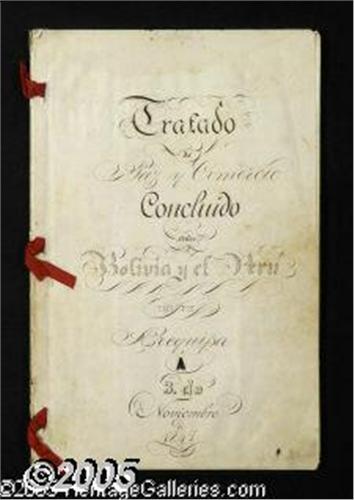 Tratado
de
Paz y Comercio
Concluido
entre
Bolivia y el Perú
Arequipa
A
3. de
Noviembre
de
1847
©2005
©2005 HeritageGalleries.com